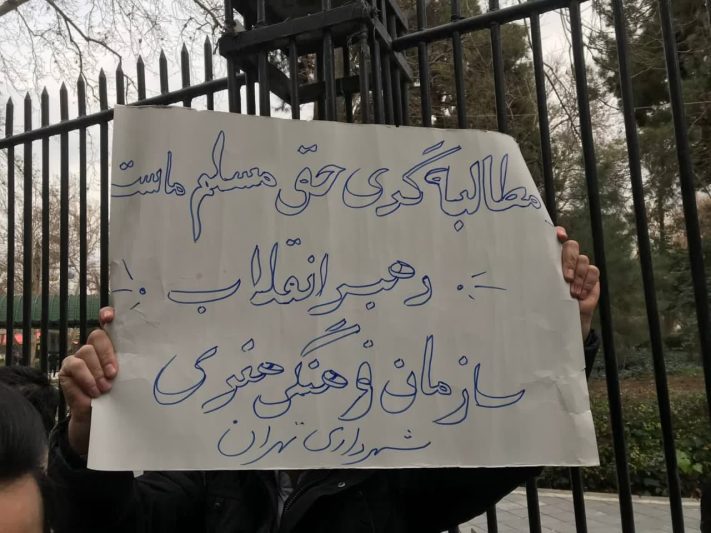 مطالبه گری حق مسلم ماست
رهبر انقلاب
سازمان فرهنگی هنری
شهرداری تهران